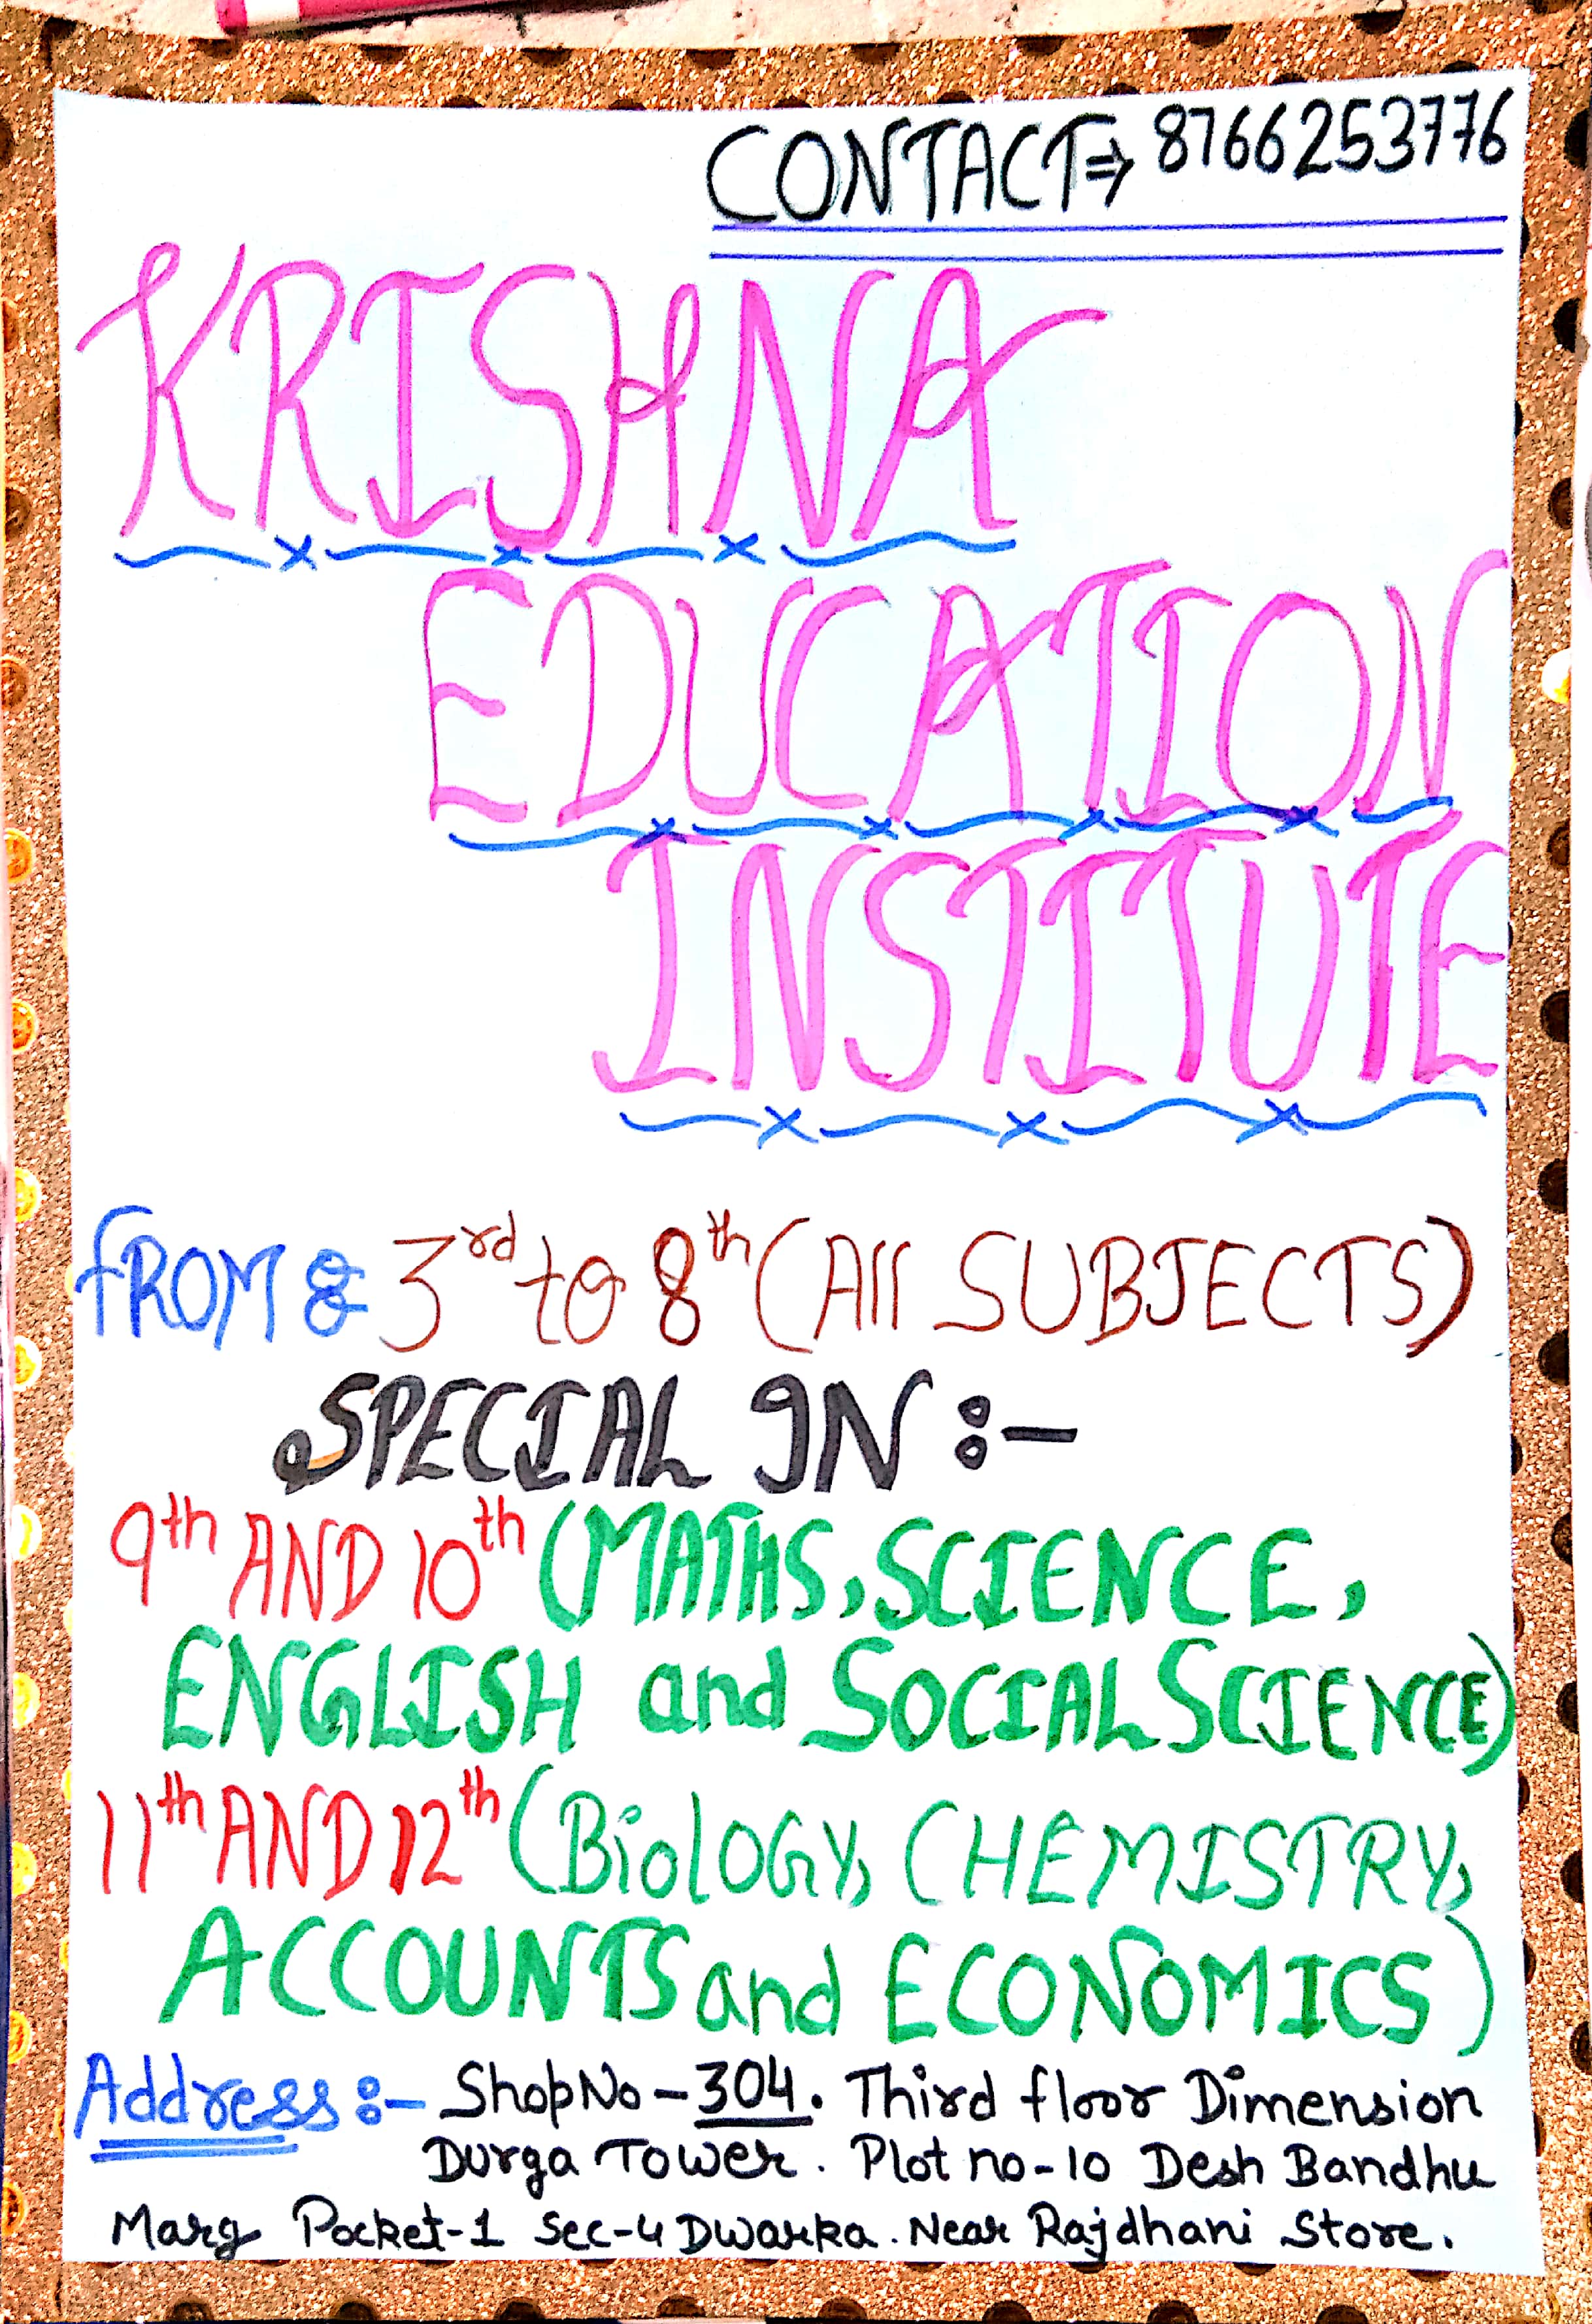 CONTACT⇒ 8766253776
KRISHNA
EDUCATION
INSTITUTE
fROM 8 3rd to 8th (All SUBJECTS)
SPECIAL IN :-
9th AND 10th (MATHS, SCIENCE,
ENGLISH and SOCIAL SCIENCE)
11th AND 12th (BiOLOGY, CHEMISTRY,
ACCOUNTS and ECONOMICS)
Address :- Shop No - 304. Third floor Dimension
Durga Tower. Plot no-10 Desh Bandhu
Marg Pocket-1 Sec-4 Dwarka. Near Rajdhani Store.